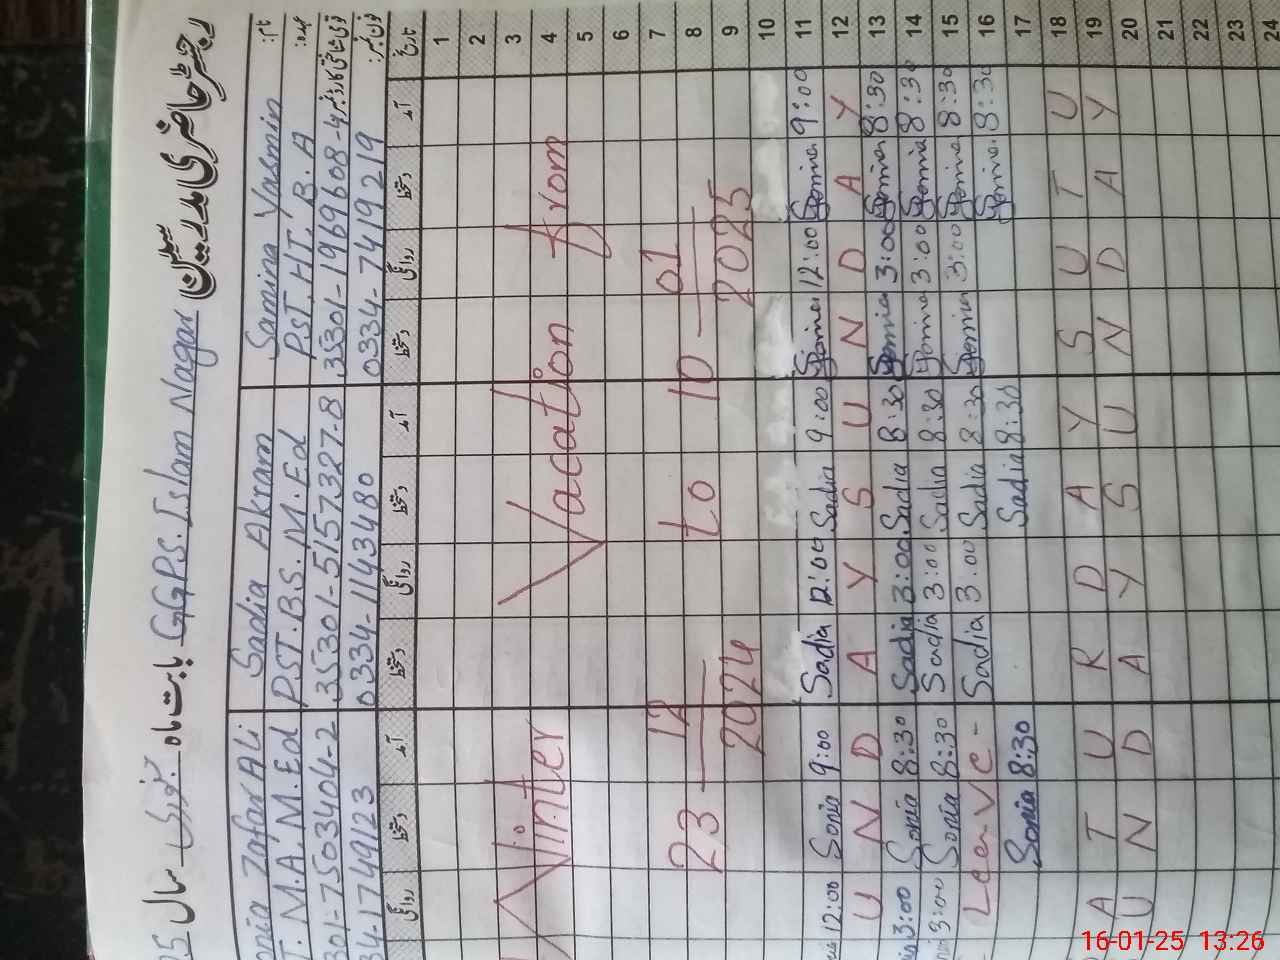 رجسٹر حاضری مدرسین GGPS. Islam Nagar بابت ماہ جنوری سال
نام: Samina Yasmin Sadia Akram Zafar Ali
عہدہ: PST, HT, B.A PST. B.S. M.Ed M.A. M.Ed
قومی شناختی کارڈ نمبر 35301-1969608-4 35301-5157327-8 301-7503404-2
فون نمبر: 0334-7419219 0334-1143480 34-1749123
تاریخ آمد دستخط روانگی دستخط آمد دستخط روانگی دستخط آمد دستخط روانگی
1
2
3
4
5
6
7
8
9
10
Winter Vacation from
23 12 2024 to 10 01 2025
11 9:00 Samina 12:00 Samina 9:00 Sadia 12:00 Sadia 9:00 Sonia 12:00
12 Y A D N U S Y A D N U
13 8:30 Samina 3:00 Samina 8:30 Sadia 3:00 Sadia 8:30 Sonia 3:00
14 8:30 Samina 3:00 Samina 8:30 Sadia 3:00 Sadia 8:30 Sonia 3:00
15 8:30 Samina 3:00 Samina 8:30 Sadia 3:00 Sadia Leave -
16 8:30 Samina 8:30 Sadia 8:30 Sonia
17
18 U T U S Y A D R U T A
19 Y A D N U S Y A D N U
20
21
22
23
24
16-01-25 13:26